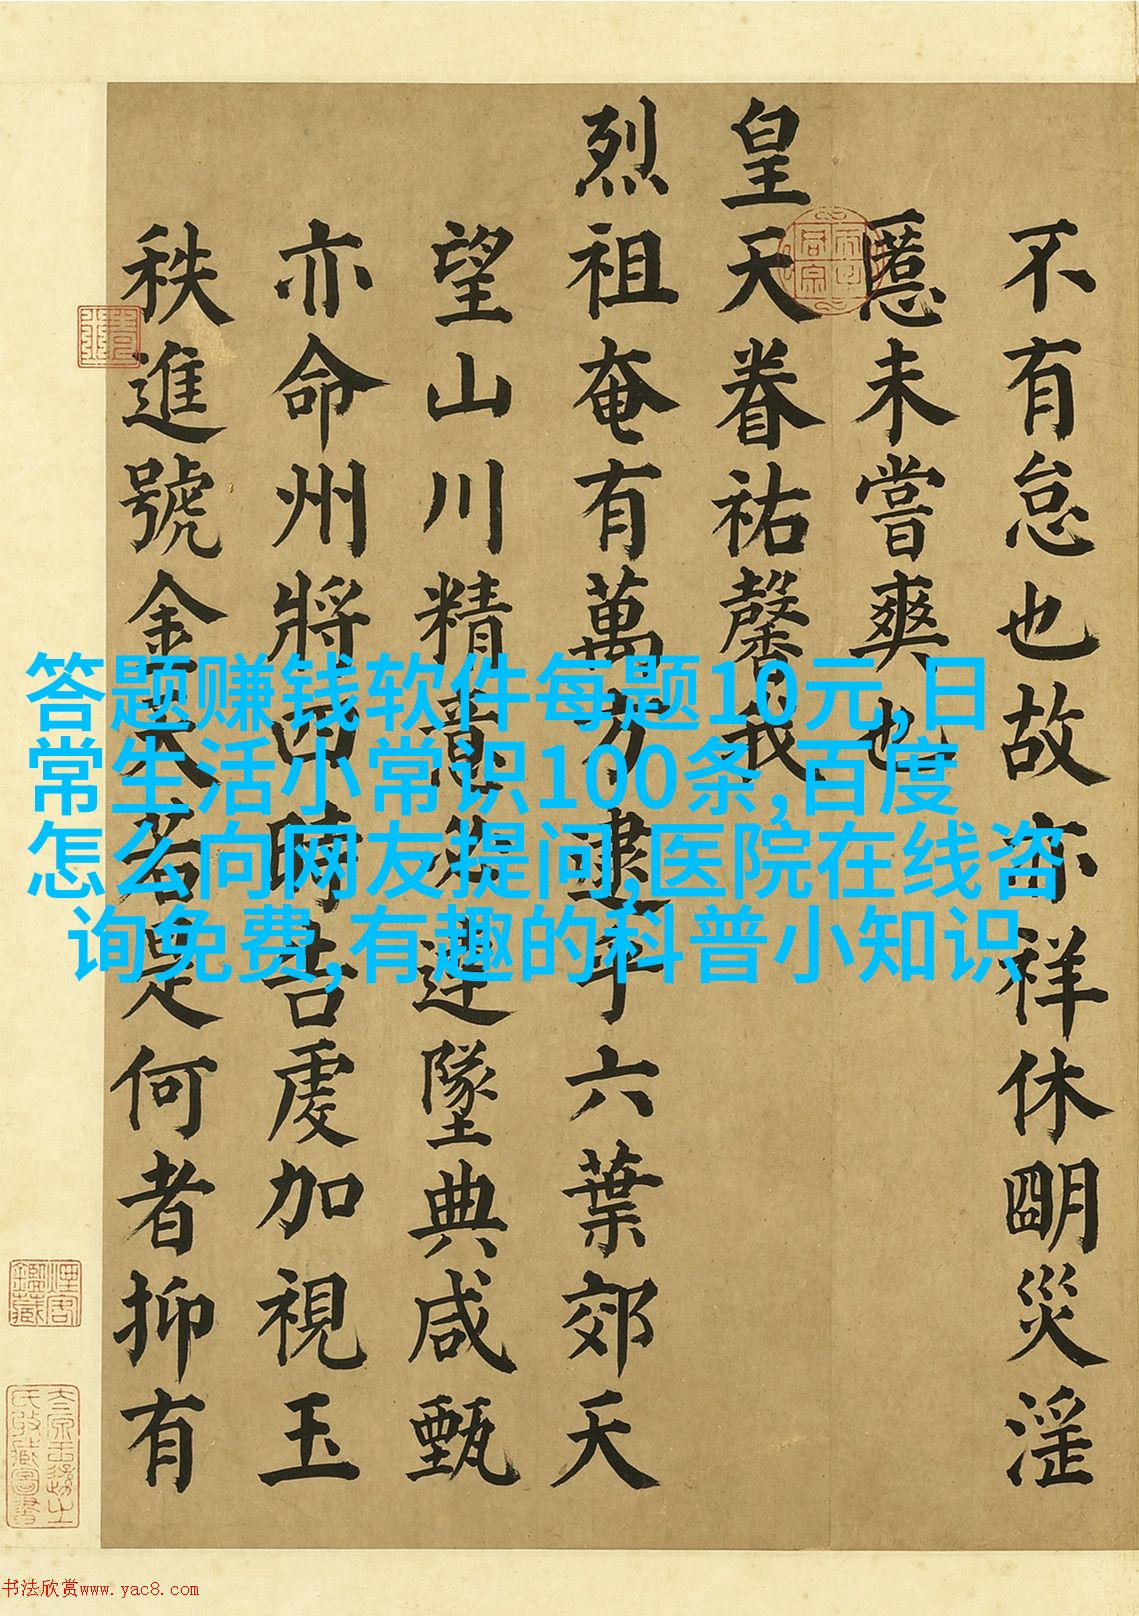 不有怠也故亦祥休朙災淫
慝未嘗爽也
皇天眷祐馨我
烈祖奄有萬方逮乎六葉郊天
望山川精意必達墜典咸甄
亦命州將四時告虔加視玉
秩進號金天若是何者抑有
答题赚钱软件每题10元,日
常生活小常识100条,百度
怎么向网友提问,医院在线咨
询免费,有趣的科普小知识
书法欣赏www.yac8.com